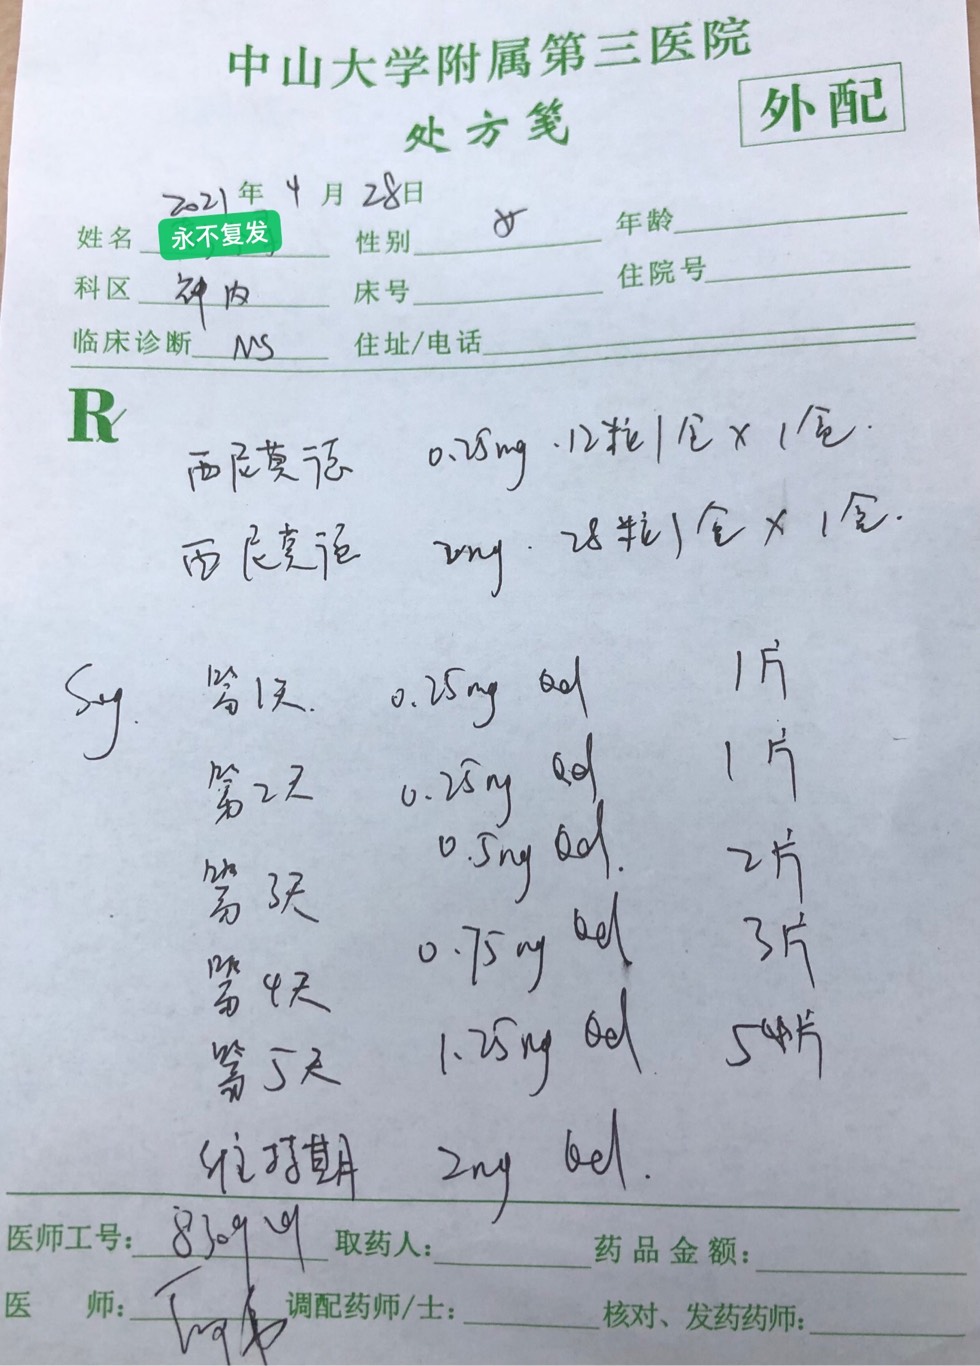 中山大学附属第三医院
处方笺
外配
2021年 4月 28日
姓名 永不复发 性别 女 年龄
科区 神内 床号 住院号
临床诊断 MS 住址/电话
R
西尼莫德 0.25mg·12粒/盒×1盒.
西尼莫德 2mg·28粒/盒×1盒.
Sig. 第1天. 0.25mg Qd 1片
第2天 0.25mg Qd 1片
第3天 0.5mg Qd. 2片
第4天 0.75mg Qd 3片
第5天 1.25mg Qd 5片
维持期 2mg Qd.
医师工号: 取药人: 药品金额:
医 师: 调配药师/士: 核对、发药药师: